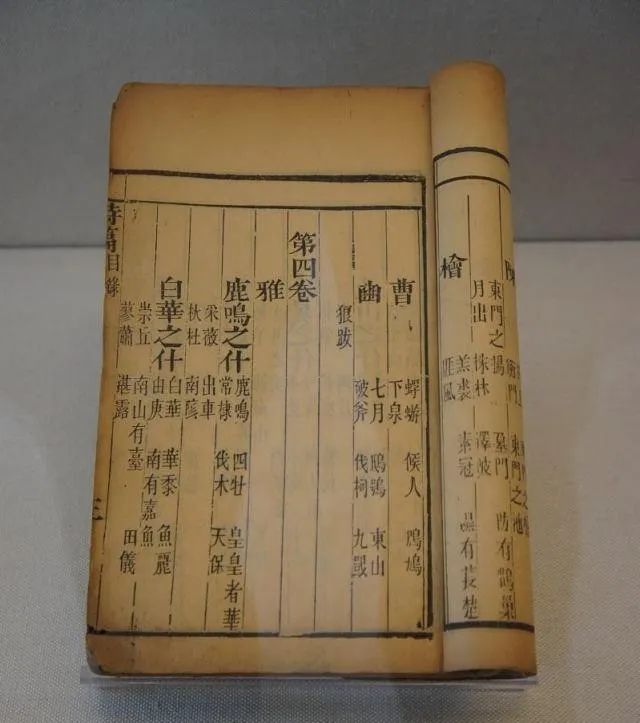 衡門 東門之池
東門之楊 墓門 防有鵲巢
月出 株林 澤陂
檜
羔裘 素冠 隰有萇楚
匪風
曹
蜉蝣 候人 鳲鳩
下泉
豳
七月 鴟鴞 東山
破斧 伐柯 九罭
狼跋
第四卷
雅
鹿鳴之什
鹿鳴 四牡 皇皇者華
常棣 伐木 天保
采薇 出車
杕杜 南陔
白華之什
白華 華黍 魚麗
由庚 南有嘉魚
崇丘 南山有臺 由儀
蓼蕭 湛露
詩篇目錄 三